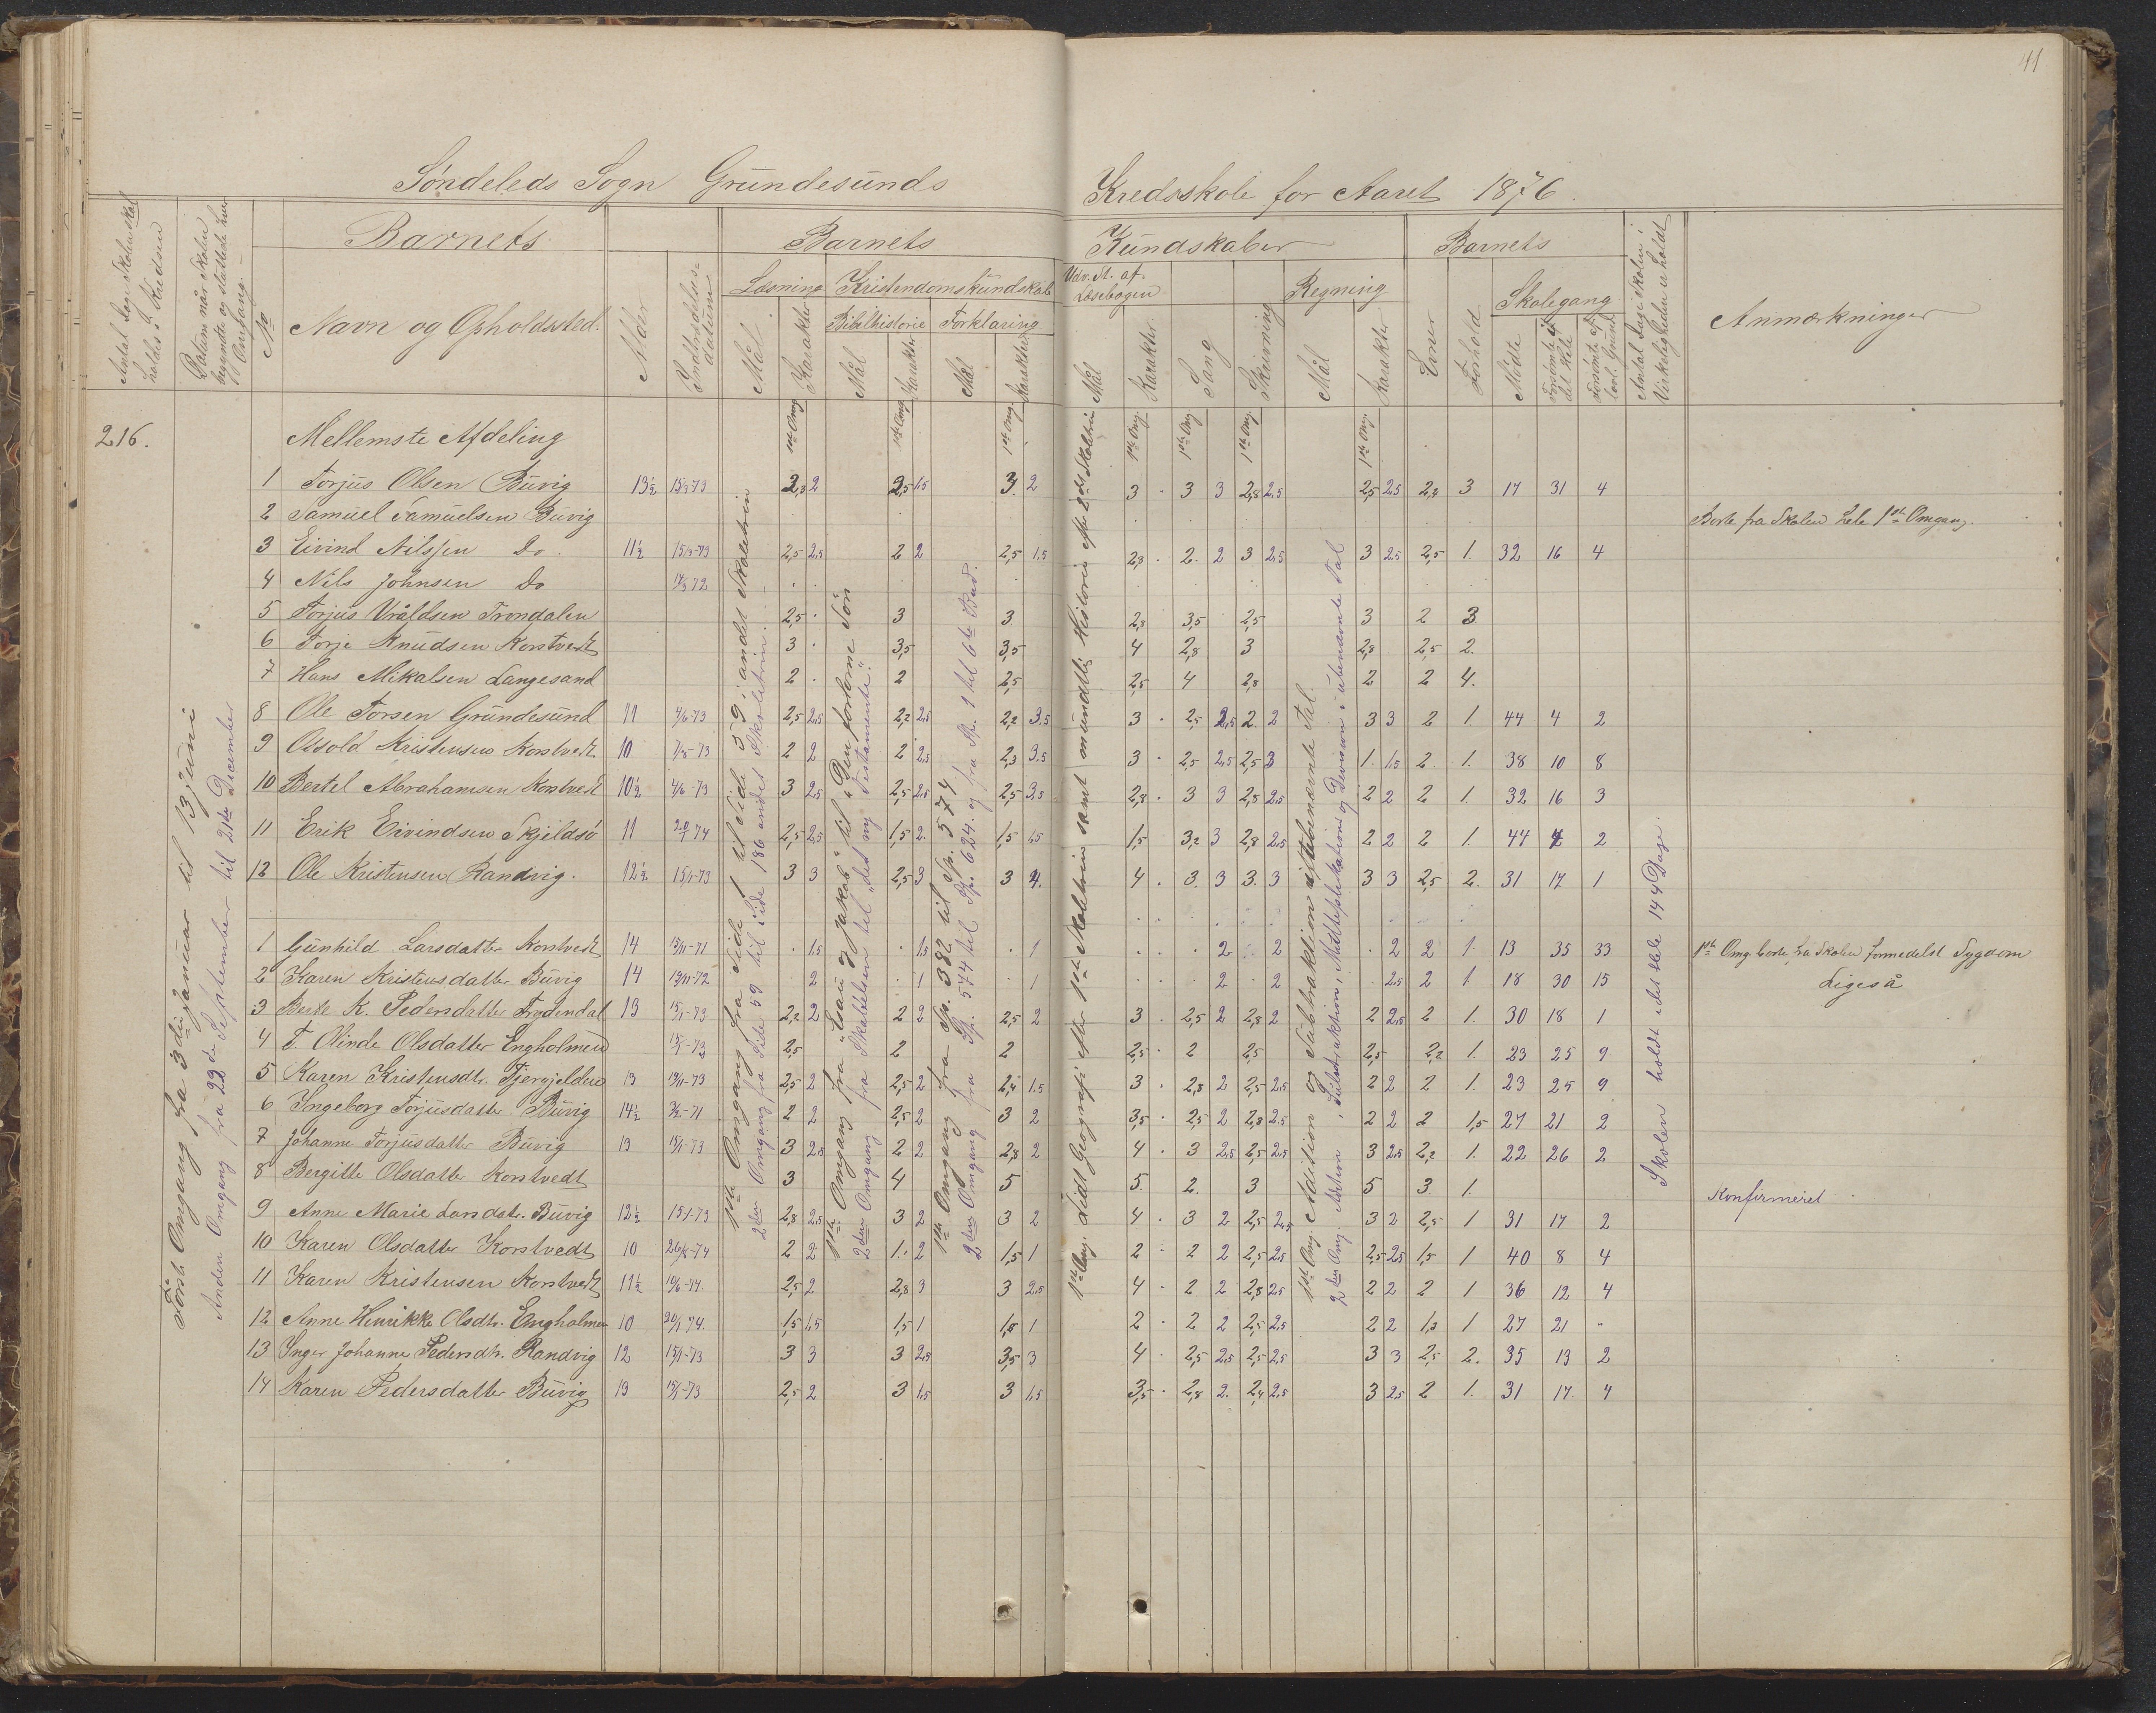 41
Søndeleds Sogn Grundesunds Kredsskole for Aaret 1876.
Antal Dage Skolen skal holdes i Kredsen
Datum når Skolen begyndte og sluttede hver Omgang.
No
Barnets
Navn og Opholdssted.
Alder
Indtrædelses-datum
Barnets Kundskaber
Læsning Kristendomskundskab
Mål Karakter
Bibelhistorie Forklaring
Mål Karakter Mål Karakter
Udv. St. af Læsebogen
Mål Karakter Sang Skrivning
Regning
Mål Karakter
Barnets
Evner Forhold
Skolegang
Mødte Forsømte i det Hele Forsømte af lovl. Grund
Antal Dage Skolen i Virkeligheden er holdt
Anmærkninger
216.
Mellemste Afdeling
1ste Omg. 1ste Omg. 1ste Omg. 1ste Omg. 1ste Omg. 1ste Omg. 1ste Omg.
1 Torjus Olsen Buvig 13½ 15/1 73 2,3 2 2,5 1.5 3. 2 3 3 3 2,8 2.5 2,5 2.5 2,2 3 17 31 4
2 Samuel Samuelsen Buvig Borte fra Skolen hele 1ste Omgang.
3 Eivind Nilssen Do. 11½ 15/1-73 2,5 2.5 2 2 2,5 1.5 2,3 2. 2 3 2.5 3 2.5 2,5 1. 32 16 4
4 Nils Johnsen Do
5 Torjus Vråldsen Trondalen 2,5 3 3 2,3 3,5 2,5 3 2 3
6 Torje Knudsen Korstvedt 3 3,5 3,5 4 2,8 3 2,8 2,5 2.
7 Hans Mikalsen Langesand 2 2 2,5 2,5 4 2,8 2 2 4.
8 Ole Torsen Grundesund 11 4/6-73 2,5 2.5 2,2 2.5 2,2 3.5 3 2,5 2.5 2. 2 3 3 2 1. 44 4 2
9 Osvold Kristensen Korstvedt 10 2 2 2 2.5 2,3 3.5 3 2,5 2.5 2,5 3 1. 1.5 2 1. 38 10 8
10 Bertel Abrahamsen Korstvedt 10½ 4/6-73 3 2.5 2,5 2.5 2,5 3.5 2,8 3 3 2,8 2.5 2 2 2 1 32 16 3
11 Erik Eivindsen Skjeldsø 11 20/1 74 2,5 2.5 1,5 2. 1,5 1.5 1,5 3,2 3 2,8 2.5 2 2 2 1. 44 4 2
12 Ole Kristensen Randvig. 12½ 15/1-73 3 3 2,5 3 3 4. 4. 3. 3 3. 3 3 3 2,5 2. 31 17 1
1 Gunhild Larsdatter Korstvedt 14 13/11-71 1.5 1.5 1 2 2 2 2 1. 13 35 33 1ste Omg. borte fra Skolen formedelst Sygdom
2 Karen Kristensdatter Buvig 14 19/11-72 2 1 1 2 2 2.5 2 1 18 30 15 Ligeså
3 Berte K. Pedersdatter Frydendal 13 15/1-73 2,2 2 2 2 2,5 2 3 2,5 2 2,8 2 2 2.5 2 1. 30 18 1
4 T. Olinde Olsdatter Engholmen 15/1-73 2,5 2 2 2,5 2 2,5 2,5 2,2 1. 23 25 9
5 Karen Kristensdtr. 13 19/11-73 2,5 2 2,5 2 2,4 1.5 3 2,8 2 2,5 2.5 2 2 2 1. 23 25 9
6 Ingeborg Torjusdatter Buvig 14½ 2 2 2,5 2 3 2 3,5 2,5 2 2,8 2.5 2 2 2 1,5 27 21 2
7 Johanne Torjusdatter Buvig 13 15/1-73 3 2.5 2 2 2,8 2 4 3 2.5 2,5 2.5 3 2.5 2,2 1. 22 26 2
8 Bergitte Olsdatter Korstvedt 3 4 5 5. 2. 3 5 3. 1. Konfirmeret
9 Anne Marie Larsdat. Buvig 12½ 15/1-73 2,8 2.5 3 2 3 2 4 3 2 2,5 2.5 3 2 2,5 1 31 17 2
10 Karen Olsdatter Korstvedt 10 26/8-74 2 2 1. 2 1,5 1 2 2 2 2,5 2.5 2,5 2.5 1,5 1 40 8 4
11 Karen Kristensen Korstvedt 11½ 10/6-74. 2,5 2 2,8 3 3 2.5 4 2 2 2,8 2.5 2 2 2 1 36 12 4
12 Anne Henrikke Olsdtr. Engholmen 10 20/1 74. 1,5 1.5 1,5 1 1,5 1 2 2 2 2,5 2.5 2 2 1,3 1 27 21 "
13 Inger Johanne Pedersdtr. Randvig 12 15/1-73 3 3 3 2.5 3,5 3 4 2,5 2.5 2,5 2.5 3 3 2,5 2. 35 13 2
14 Karen Pedersdatter Buvig 13 15/1-73 2,5 2 3 1.5 3 1.5 3,5 2,8 2. 2,4 2.5 3 2.5 2 1. 31 17. 4
Første Omgang fra 3die Januar til 13 Juni
Anden Omgang fra 22de September til 21de December
1ste Omgang fra Side 1 til Side 59 i andet Skoletrin
2den Omgang fra Side 59 til Side 186 andet Skoletrin.
1ste Omgang fra "Esau og Jakob" til "Den fortorne Søn
2den Omgang fra Skabelsen til "det ny Testamente".
1ste Omgang fra Sp. 382 til Sp. 574
2den Omgang fra Sp. 574 til Sp. 624. og fra Sp. 1 til 6te Bud.
1ste Omg. Lidt Geografi efter 1ste Skoletrin samt mundtlig Historie efter 2det Skoletrin
1ste Omg. Adition og Subtraktion i ubenævnte Tal.
2den Omg. Adition, Subtraktion, Multiplikation og Division i ubenævnte Tal
Skolen holdt i det Hele 144 Dage.